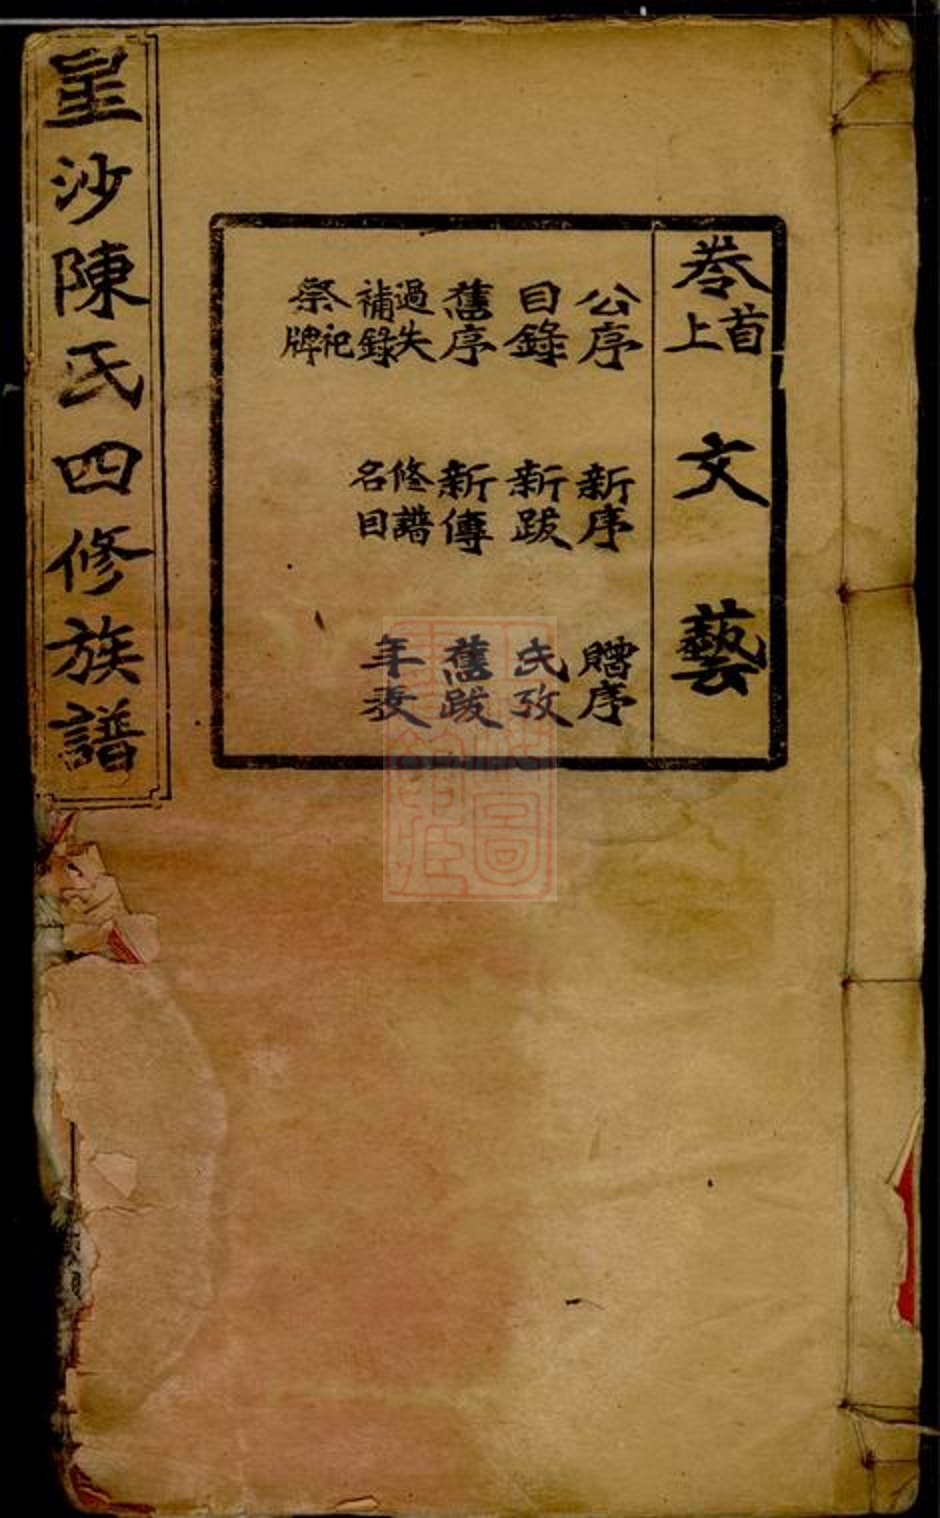 沙陳氏四修族譜
卷首上 文藝
公序 新序 贈序
目錄 新跋 氏攷
舊序 新傳 舊跋
過失補錄 修譜名目 年表
祭祀牌